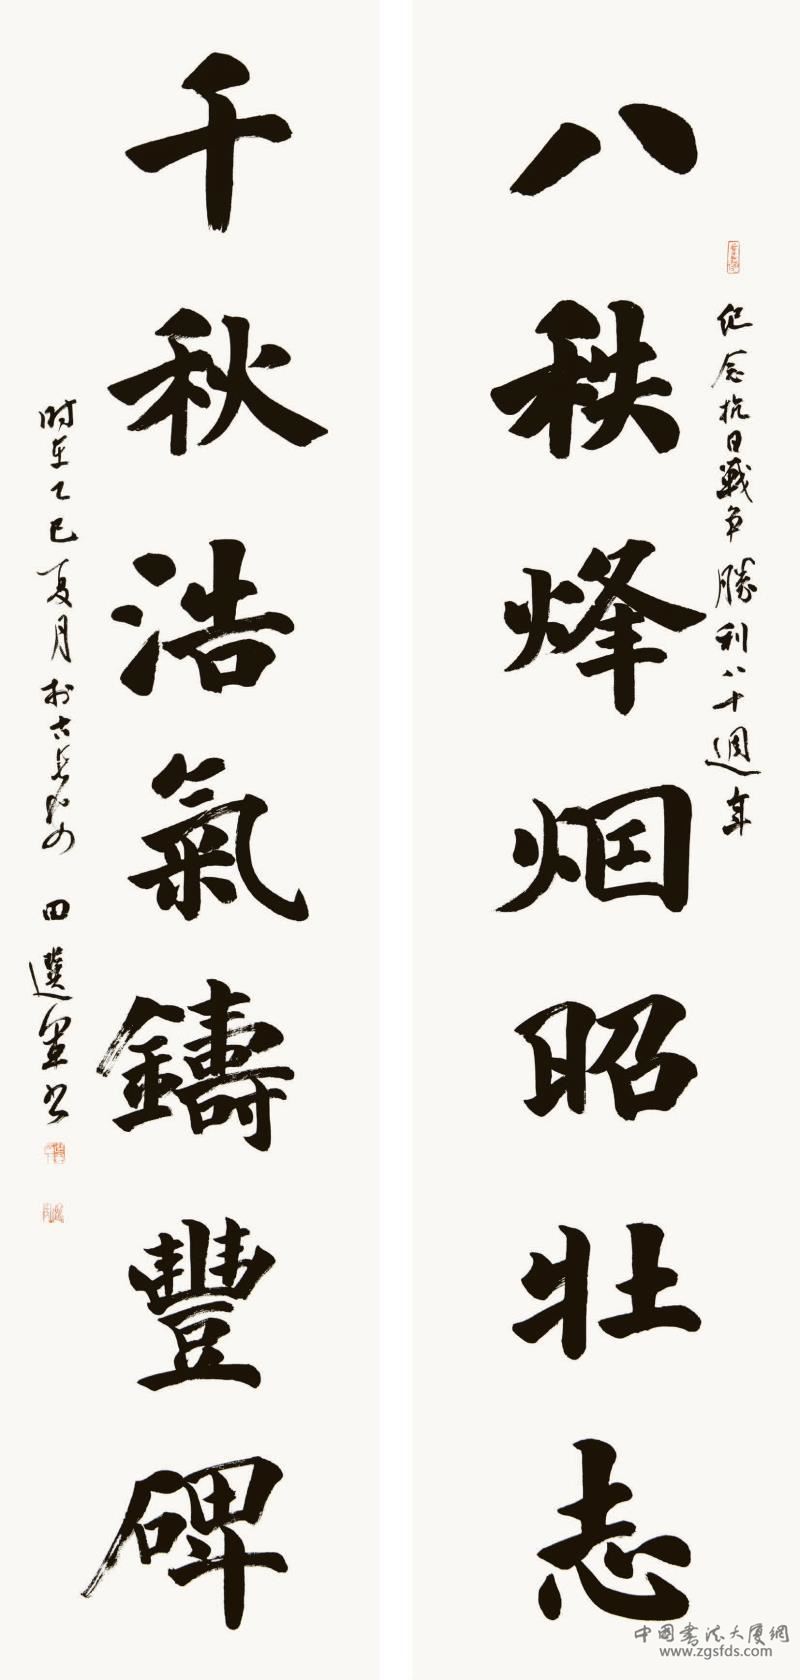 八秩烽烟昭壮志
紀念抗日戰争勝利八十週年
千秋浩氣鑄豐碑
时在乙巳夏月於古
田選墨书
中国書法大厦網
www.zgsfds.com